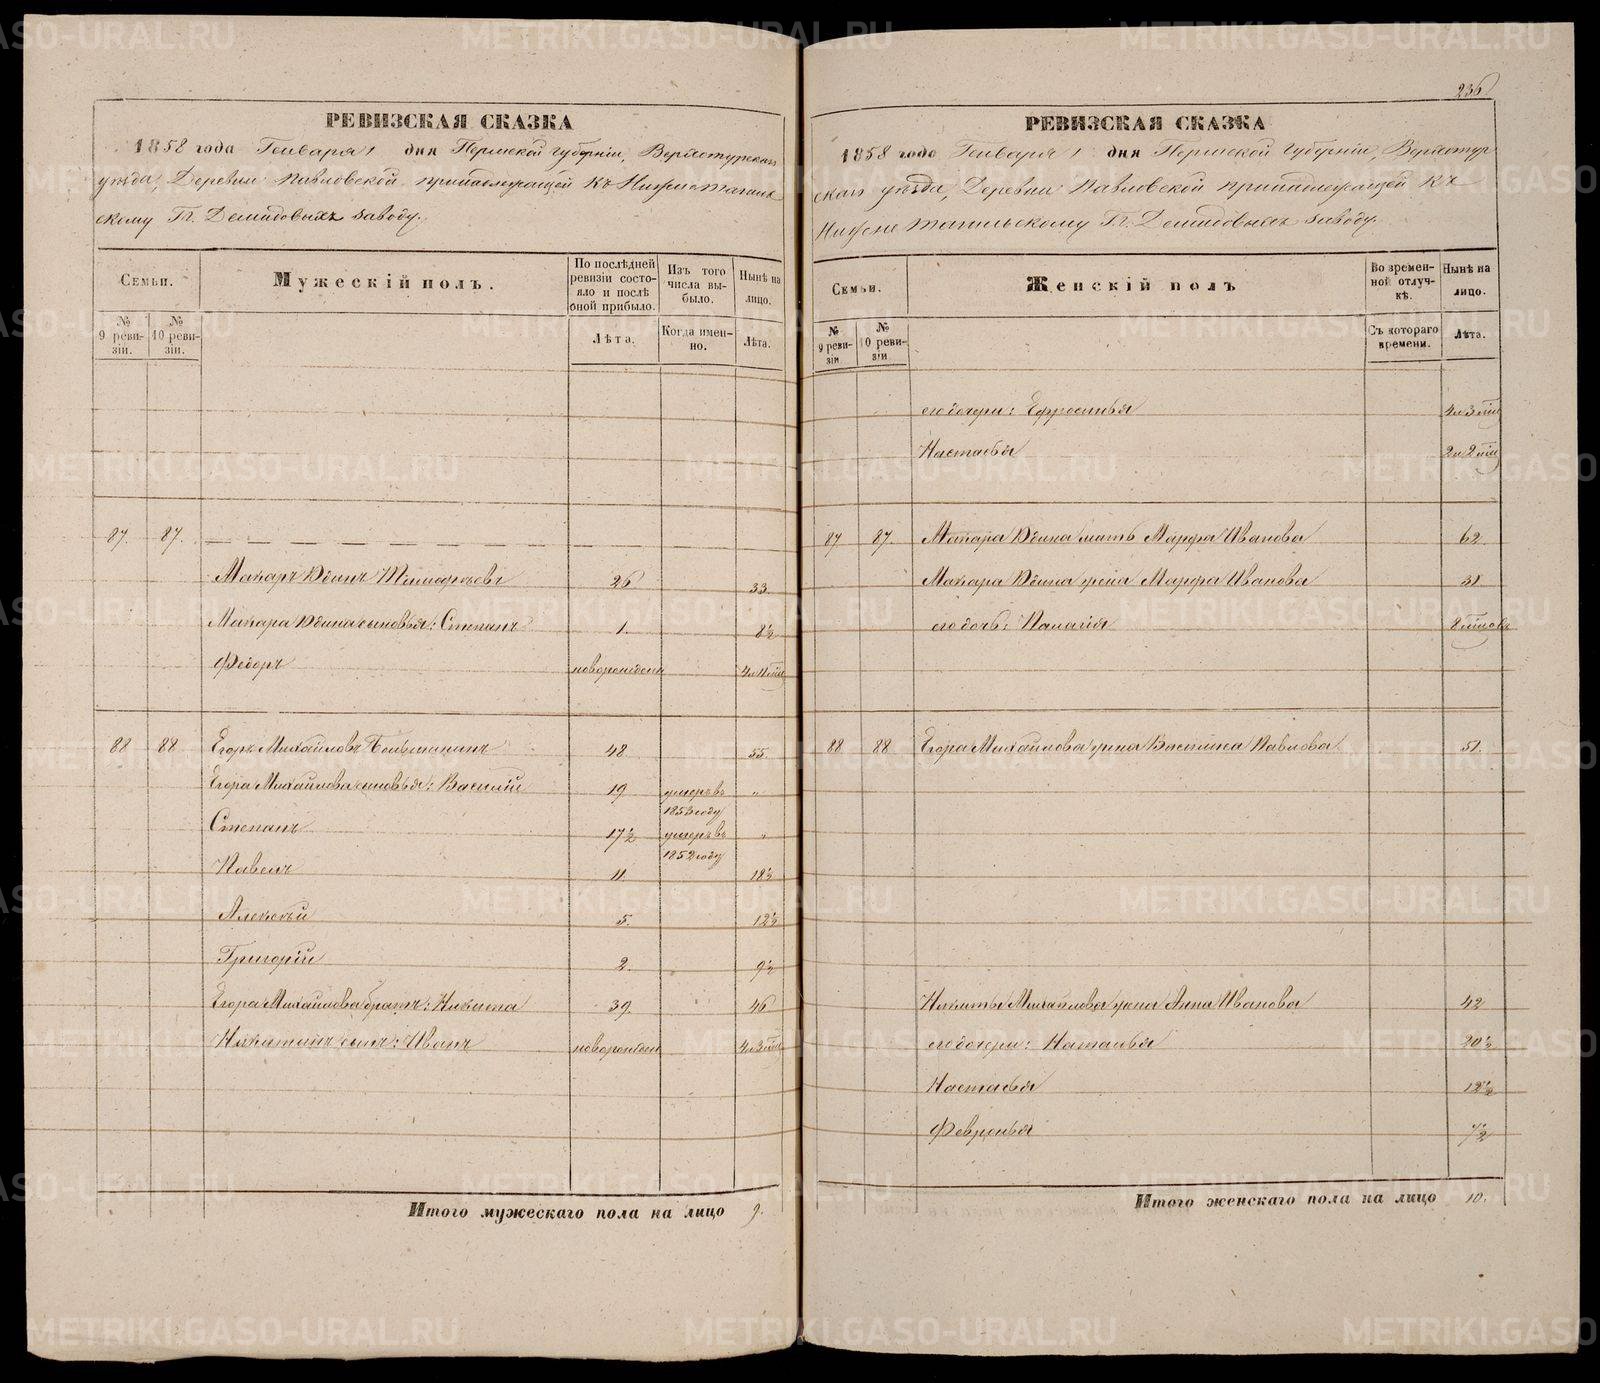 236
РЕВИЗСКАЯ СКАЗКА
1858 года Генваря 1 дня Пермской губерніи, Верхотурскаго
уѣзда, Деревни Павловской принадлежащей къ Нижнетагиль-
скому Гг. Демидовыхъ заводу.
Семьи.
Мужескій полъ.
По послѣдней ревизіи состояло и послѣ оной прибыло.
Изъ того числа выбыло.
Нынѣ на лицо.
№ 9 ревизіи.
№ 10 ревизіи.
Лѣта.
Когда именно.
Лѣта.
87. 87.
Макаръ Юдинъ Тимофѣевъ 26 33.
Макара Юдина сыновья: Степанъ 1. 8½
Федоръ новорожденъ 4 11
88 88 Егоръ Михайловъ 48 55.
Егора Михайлова сыновья: Василій 19 умеръ въ 1853 году "
Степанъ 17½ умеръ въ 1852 году "
Павелъ 11. 18½
Алексѣй 5. 12½
Григорій 2. 9½
Егора Михайлова братъ: Никита 39. 46
Никитинъ сынъ: Иванъ новорожден 4 3
Итого мужескаго пола на лицо 9.
РЕВИЗСКАЯ СКАЗКА
1858 года Генваря 1 дня Пермской губерніи, Верхотур-
скаго уѣзда, Деревни Павловской принадлежащей къ
Нижнетагильскому Гг. Демидовыхъ заводу.
Семьи.
Женскій полъ
Во временной отлучкѣ.
Нынѣ на лицо.
№ 9 ревизіи
№ 10 ревизіи
Съ котораго времени.
Лѣта.
его дочери: Ефросинья 4 3
Настасья 2 2
87 87. Макара Юдина мать Марфа Иванова 62
Макара Юдина жена Марфа Иванова 31
его дочь: Палагія 8
88 88. Егора Михайлова жена Василиса Павлова 51.
Никиты Михайлова жена Анна Иванова 42
его дочери: Наталья 20½
Настасья 12½
Февронья 7½
Итого женскаго пола на лицо 10.
METRIKI.GASO-URAL.RU